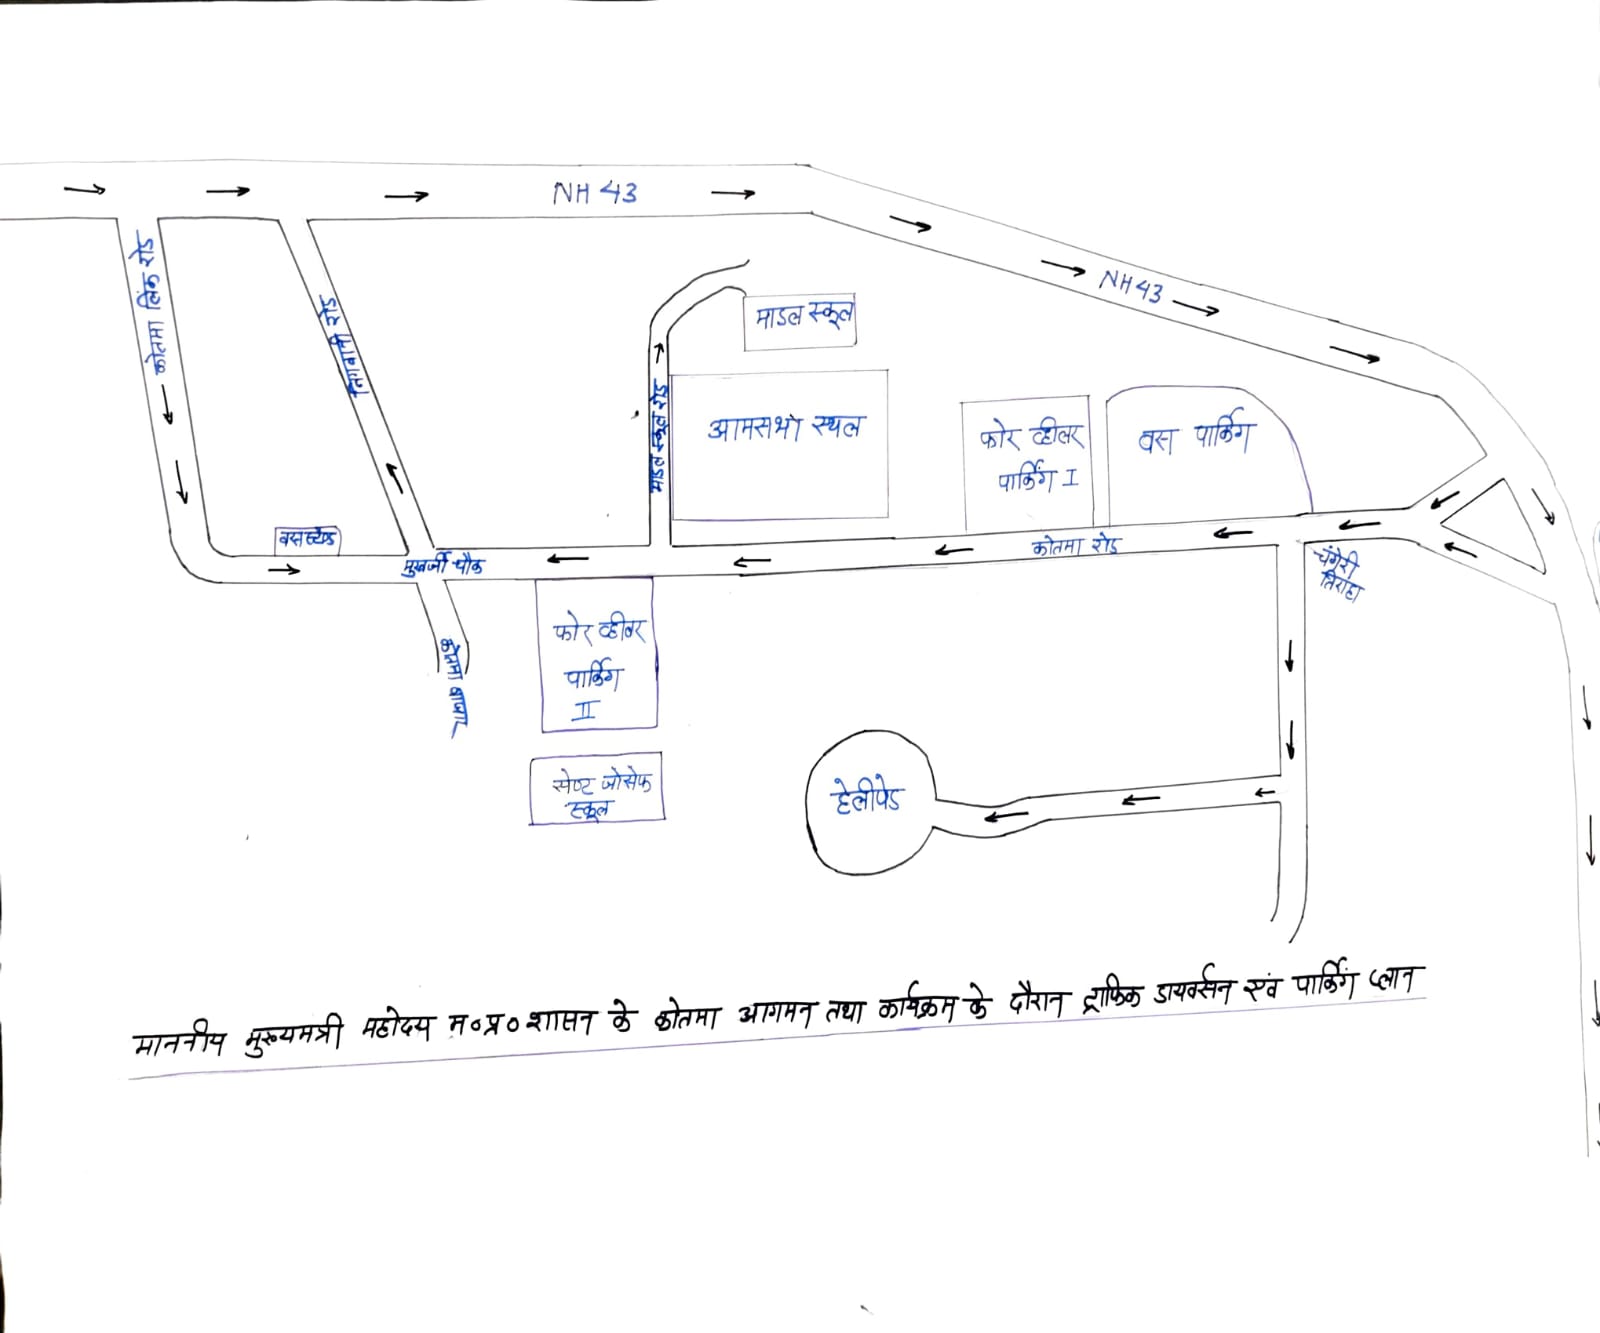 NH 43
NH 43
कोतमा लिंक रोड
निगवानी रोड
माडल स्कूल
माडल स्कूल रोड
आमसभा स्थल
फोर व्हीलर
पार्किंग I
बस पार्किंग
बसस्टैण्ड
मुखर्जी चौक
कोतमा रोड
चंगेरी
तिराहा
कोतमा बाजार
फोर व्हीलर
पार्किंग
II
सेण्ट जोसेफ
स्कूल
हेलीपेड
माननीय मुख्यमंत्री महोदय म०प्र० शासन के कोतमा आगमन तथा कार्यक्रम के दौरान ट्राफिक डायवर्सन एवं पार्किंग प्लान